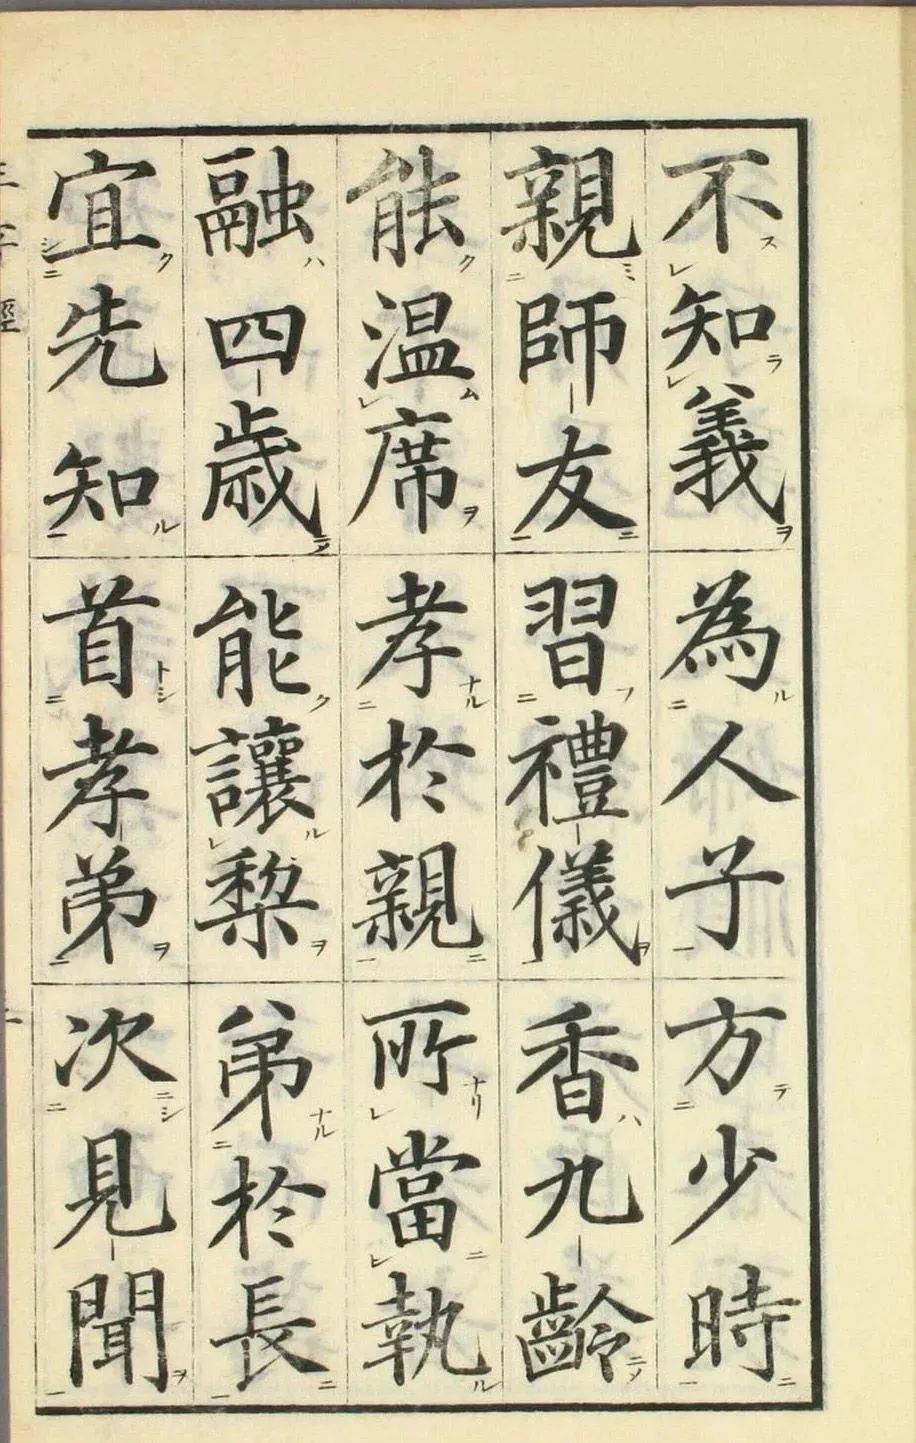 不知義為人子方少時
親師友習禮儀香九齡
能温席孝於親所當執
融四歳能讓棃弟於長
宜先知首孝弟次見聞
三字經